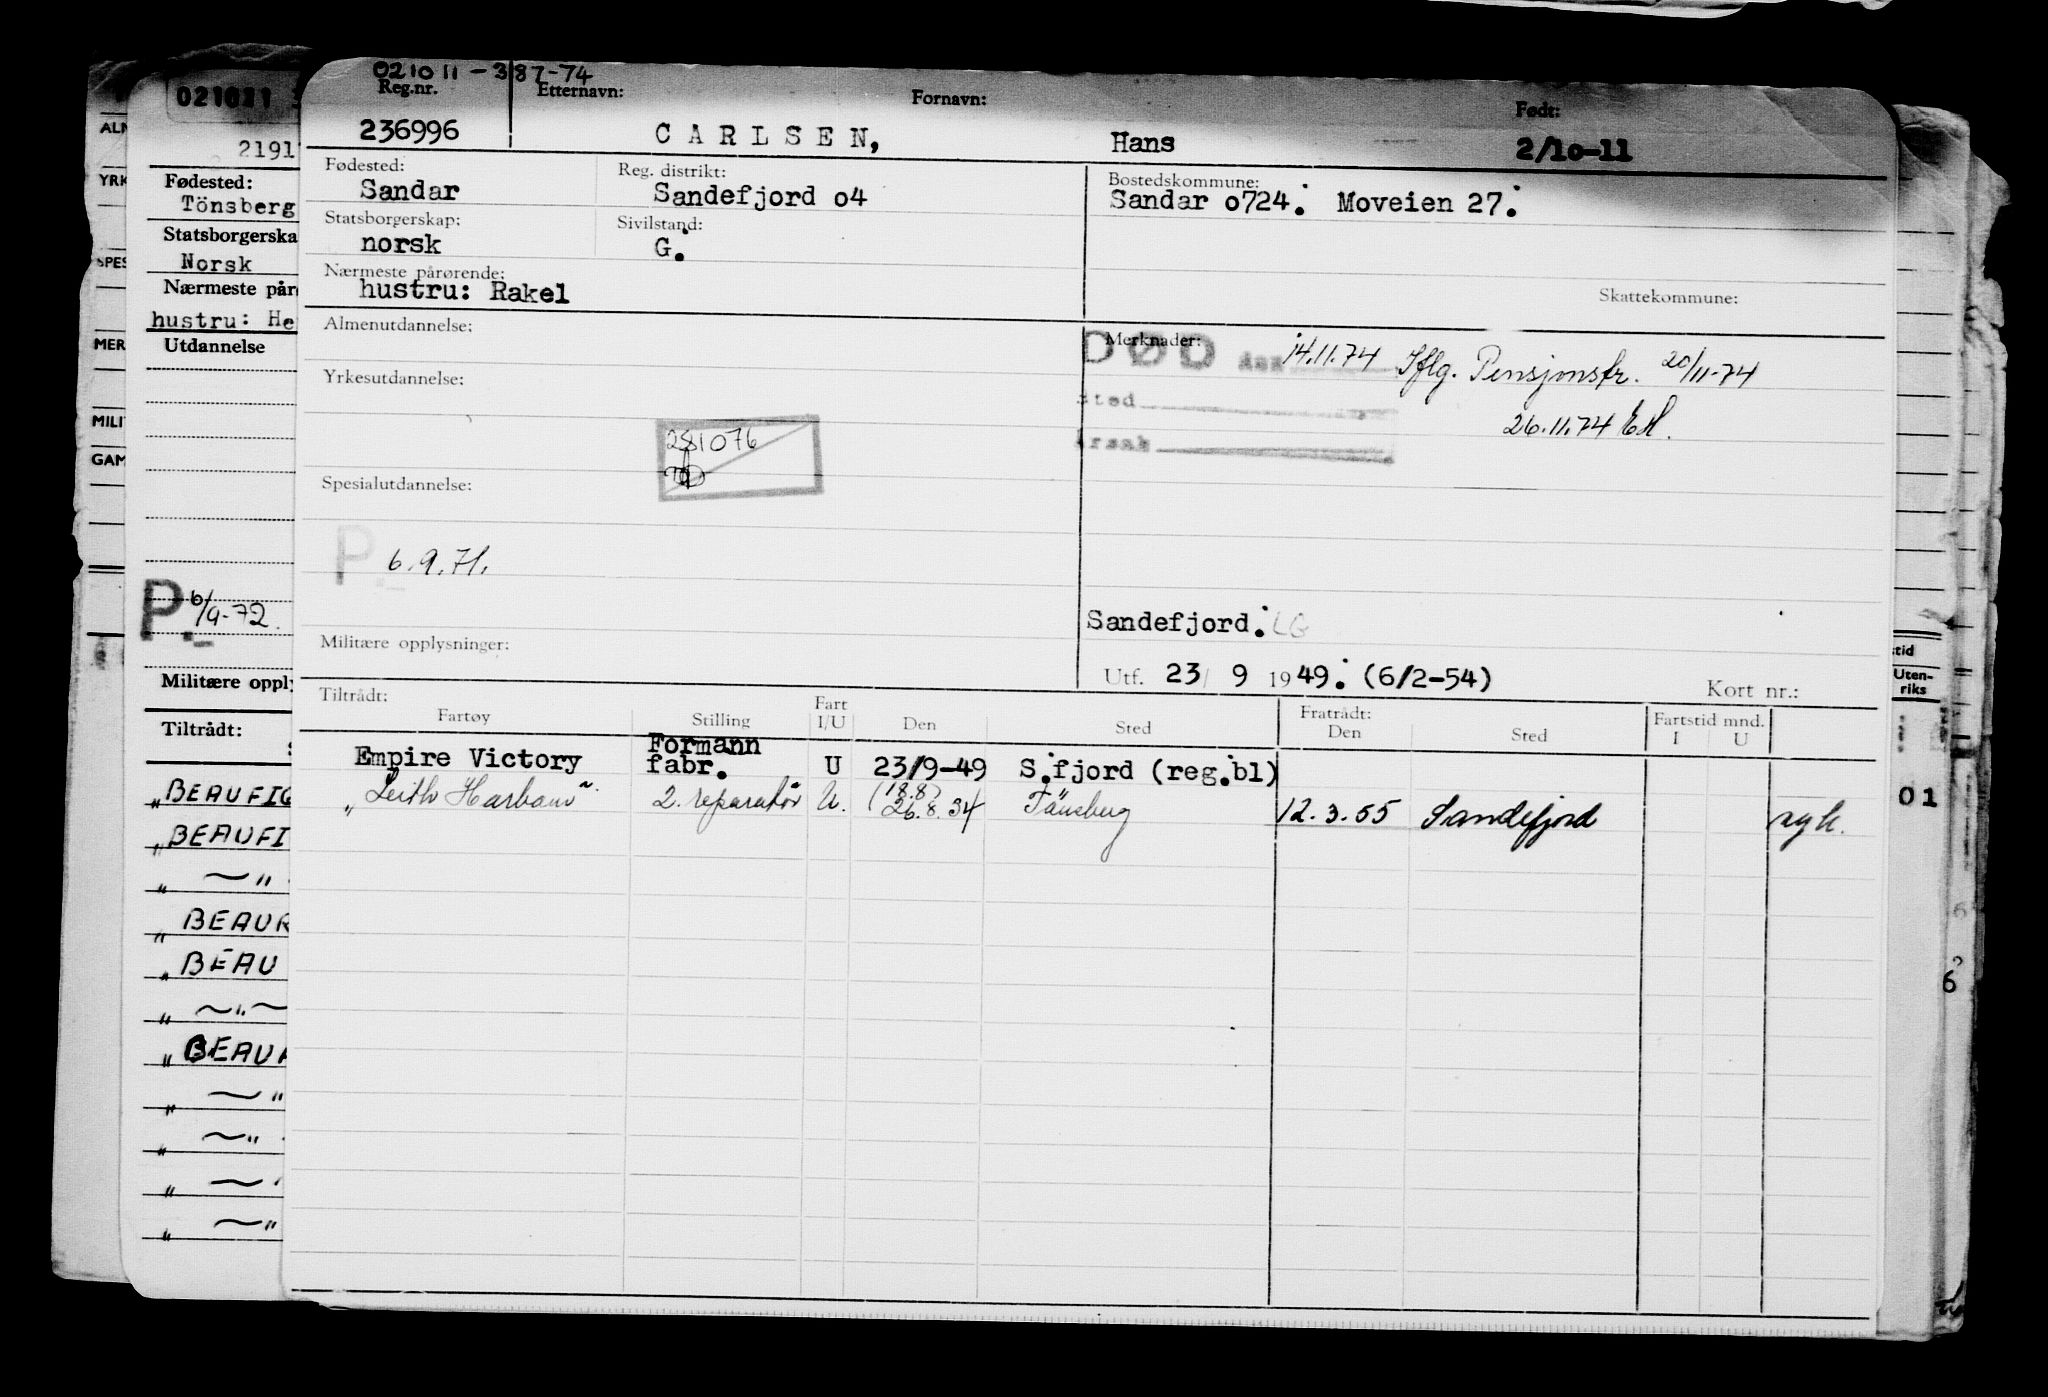 021011-387-74
Reg.nr. Etternavn: Fornavn: Født:
236996 CARLSEN, Hans 2/10-11
Fødested: Reg. distrikt: Bostedskommune:
Sandar Sandefjord o4 Sandar o724. Moveien 27.
Statsborgerskap: Sivilstand:
norsk G.
Nærmeste pårørende:
hustru: Rakel
Skattekommune:
Almenutdannelse: Merknader:
DØD den 14.11.74 Iflg. Pensjonstr. 20/11-74
Yrkesutdannelse:
sted
26.11.74 EH.
årsak
281076
Spesialutdannelse:
P. 6.9.71.
Sandefjord. LG
Militære opplysninger:
Utf. 23/ 9 1949. (6/2-54) Kort nr.:
Tiltrådt: Fart Fratrådt: Fartstid mnd.
Fartøy Stilling I/U Den Sted Den Sted I U
Empire Victory Formann fabr. U 23/9-49 S.fjord (reg.bl)
" Leith Harbour " 2. reparatör U. (18.8) 26.8.54 Tönsberg 12.3.55 Sandefjord
021011
2191
Fødested:
Tönsberg
Statsborgerska
Norsk
Nærmeste påre
hustru: He
Utdannelse
P. 6/9-72.
Militære opply
Tiltrådt:
" BEAUFIG
" BEAUFI
" ~ "
" BEAUR
" BEAU
" ~ " ~
" BEAUR
" ~ "
" ~ "
" ~
" ~ "
ALM
YRK
SPES
MER
MILI
GAM
tid
Uten-
riks
01
6